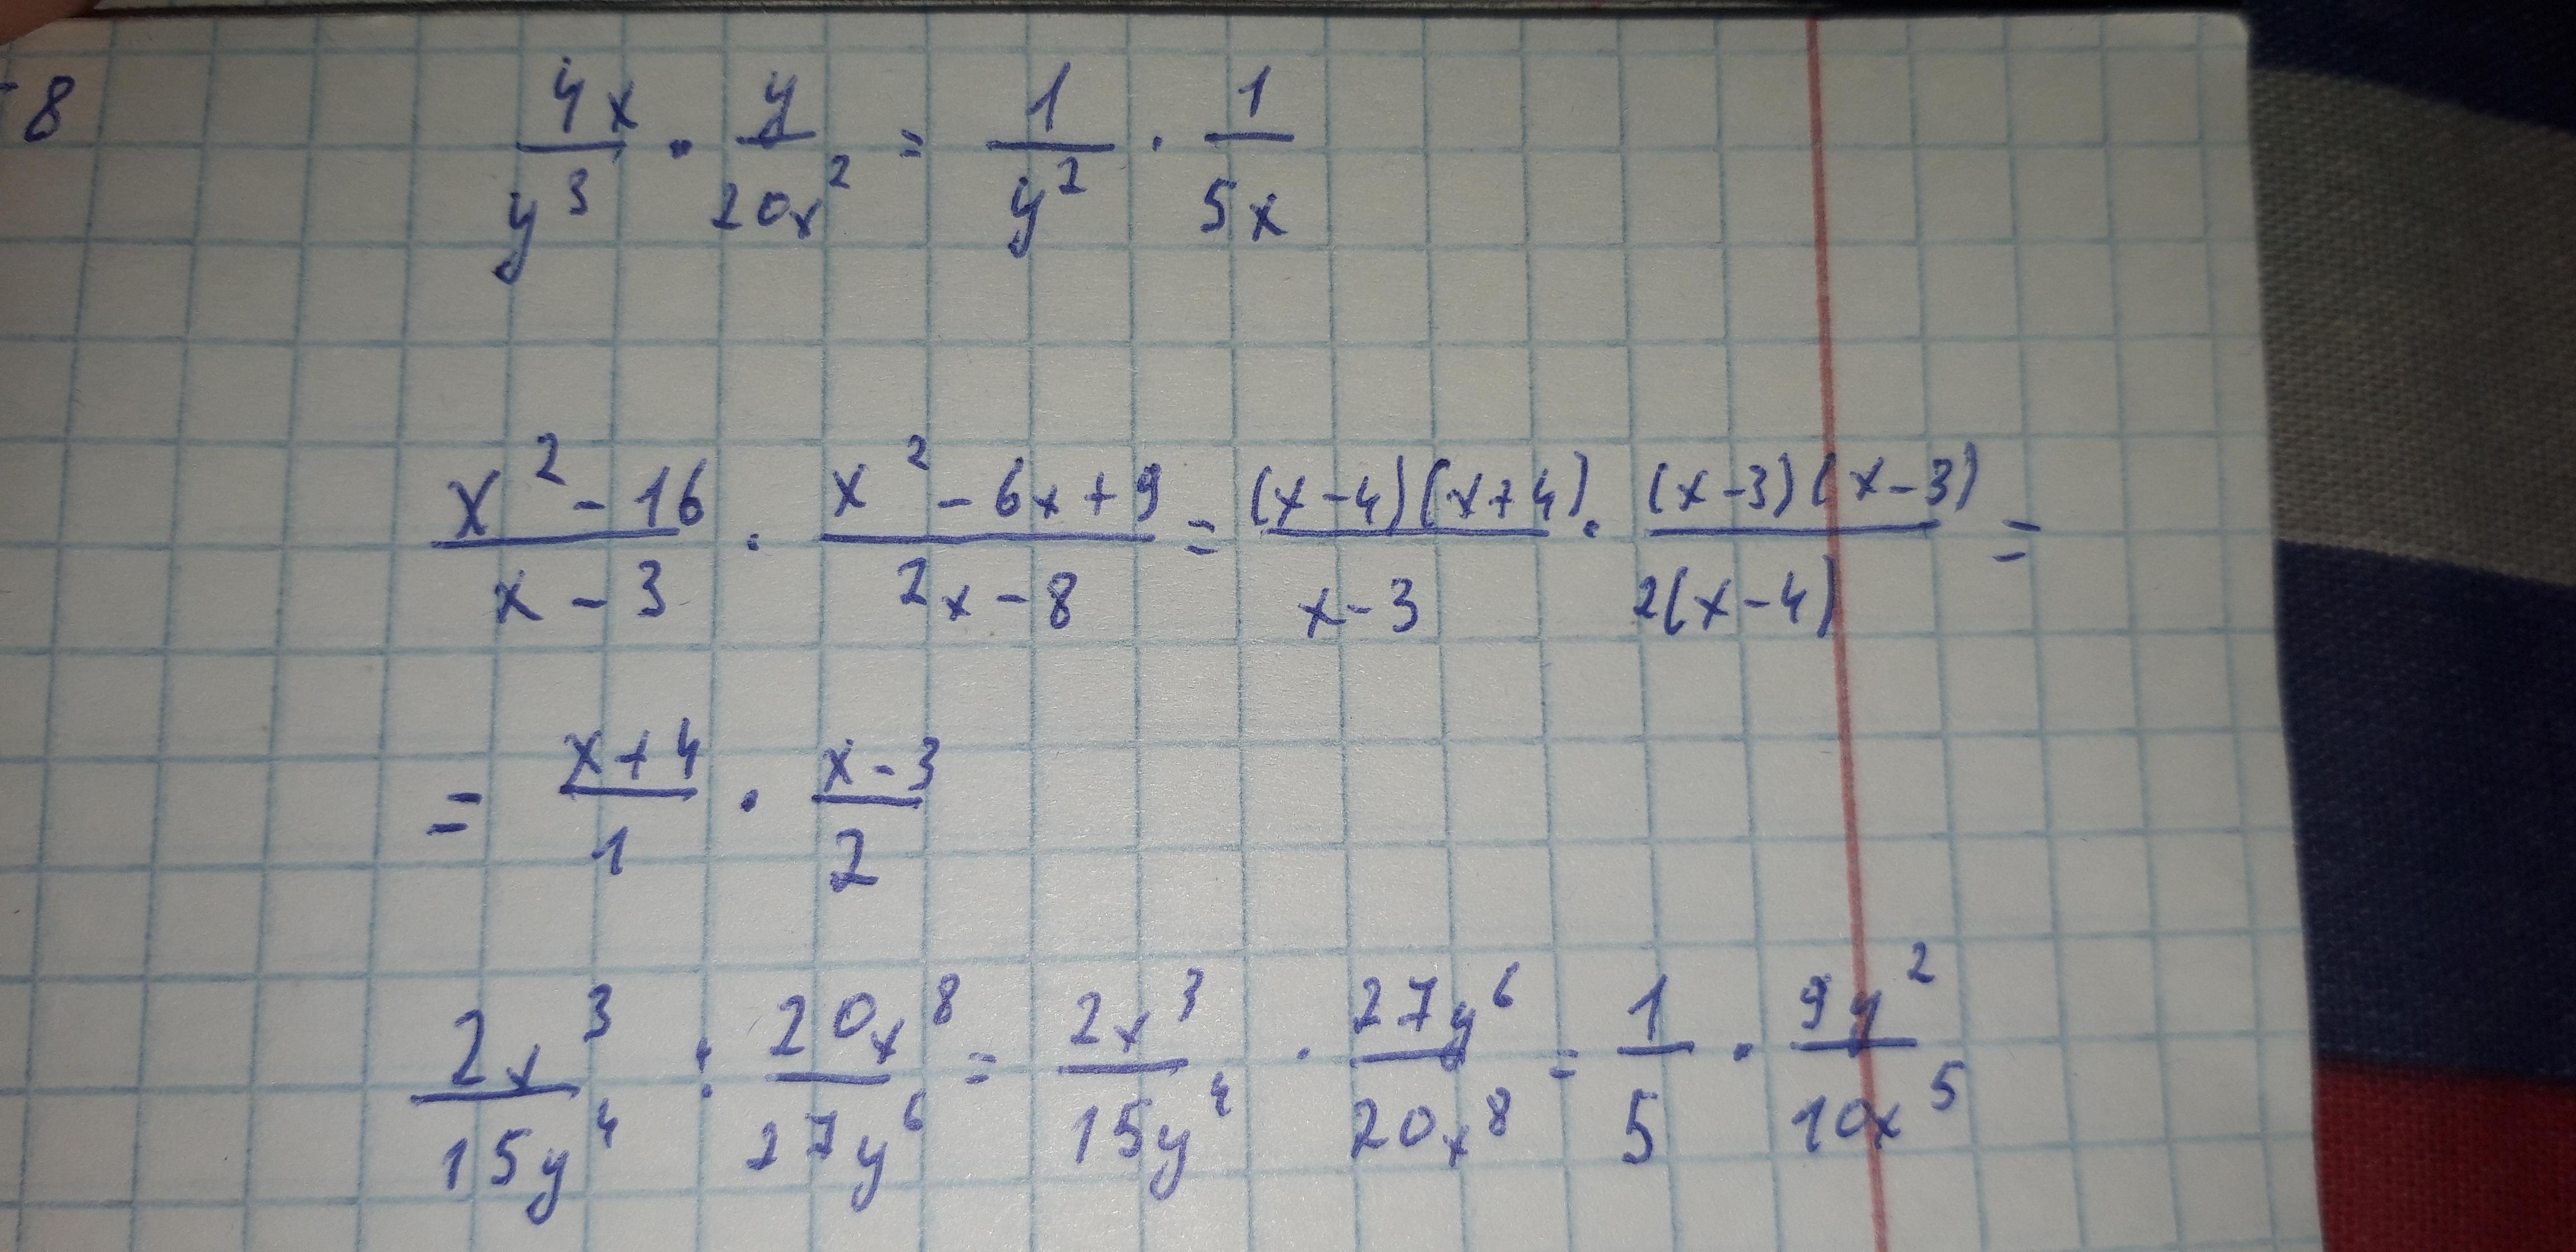 -8
4x/y³ · y/20x² = 1/y² · 1/5x
x² - 16/x - 3 · x² - 6x + 9/2x - 8 = (x - 4)(x + 4)/x - 3 · (x - 3)(x - 3)/2(x - 4) =
= x + 4/1 · x - 3/2
2x³/15y⁴ : 20x⁸/27y⁶ = 2x³/15y⁴ · 27y⁶/20x⁸ = 1/5 · 9y²/10x⁵